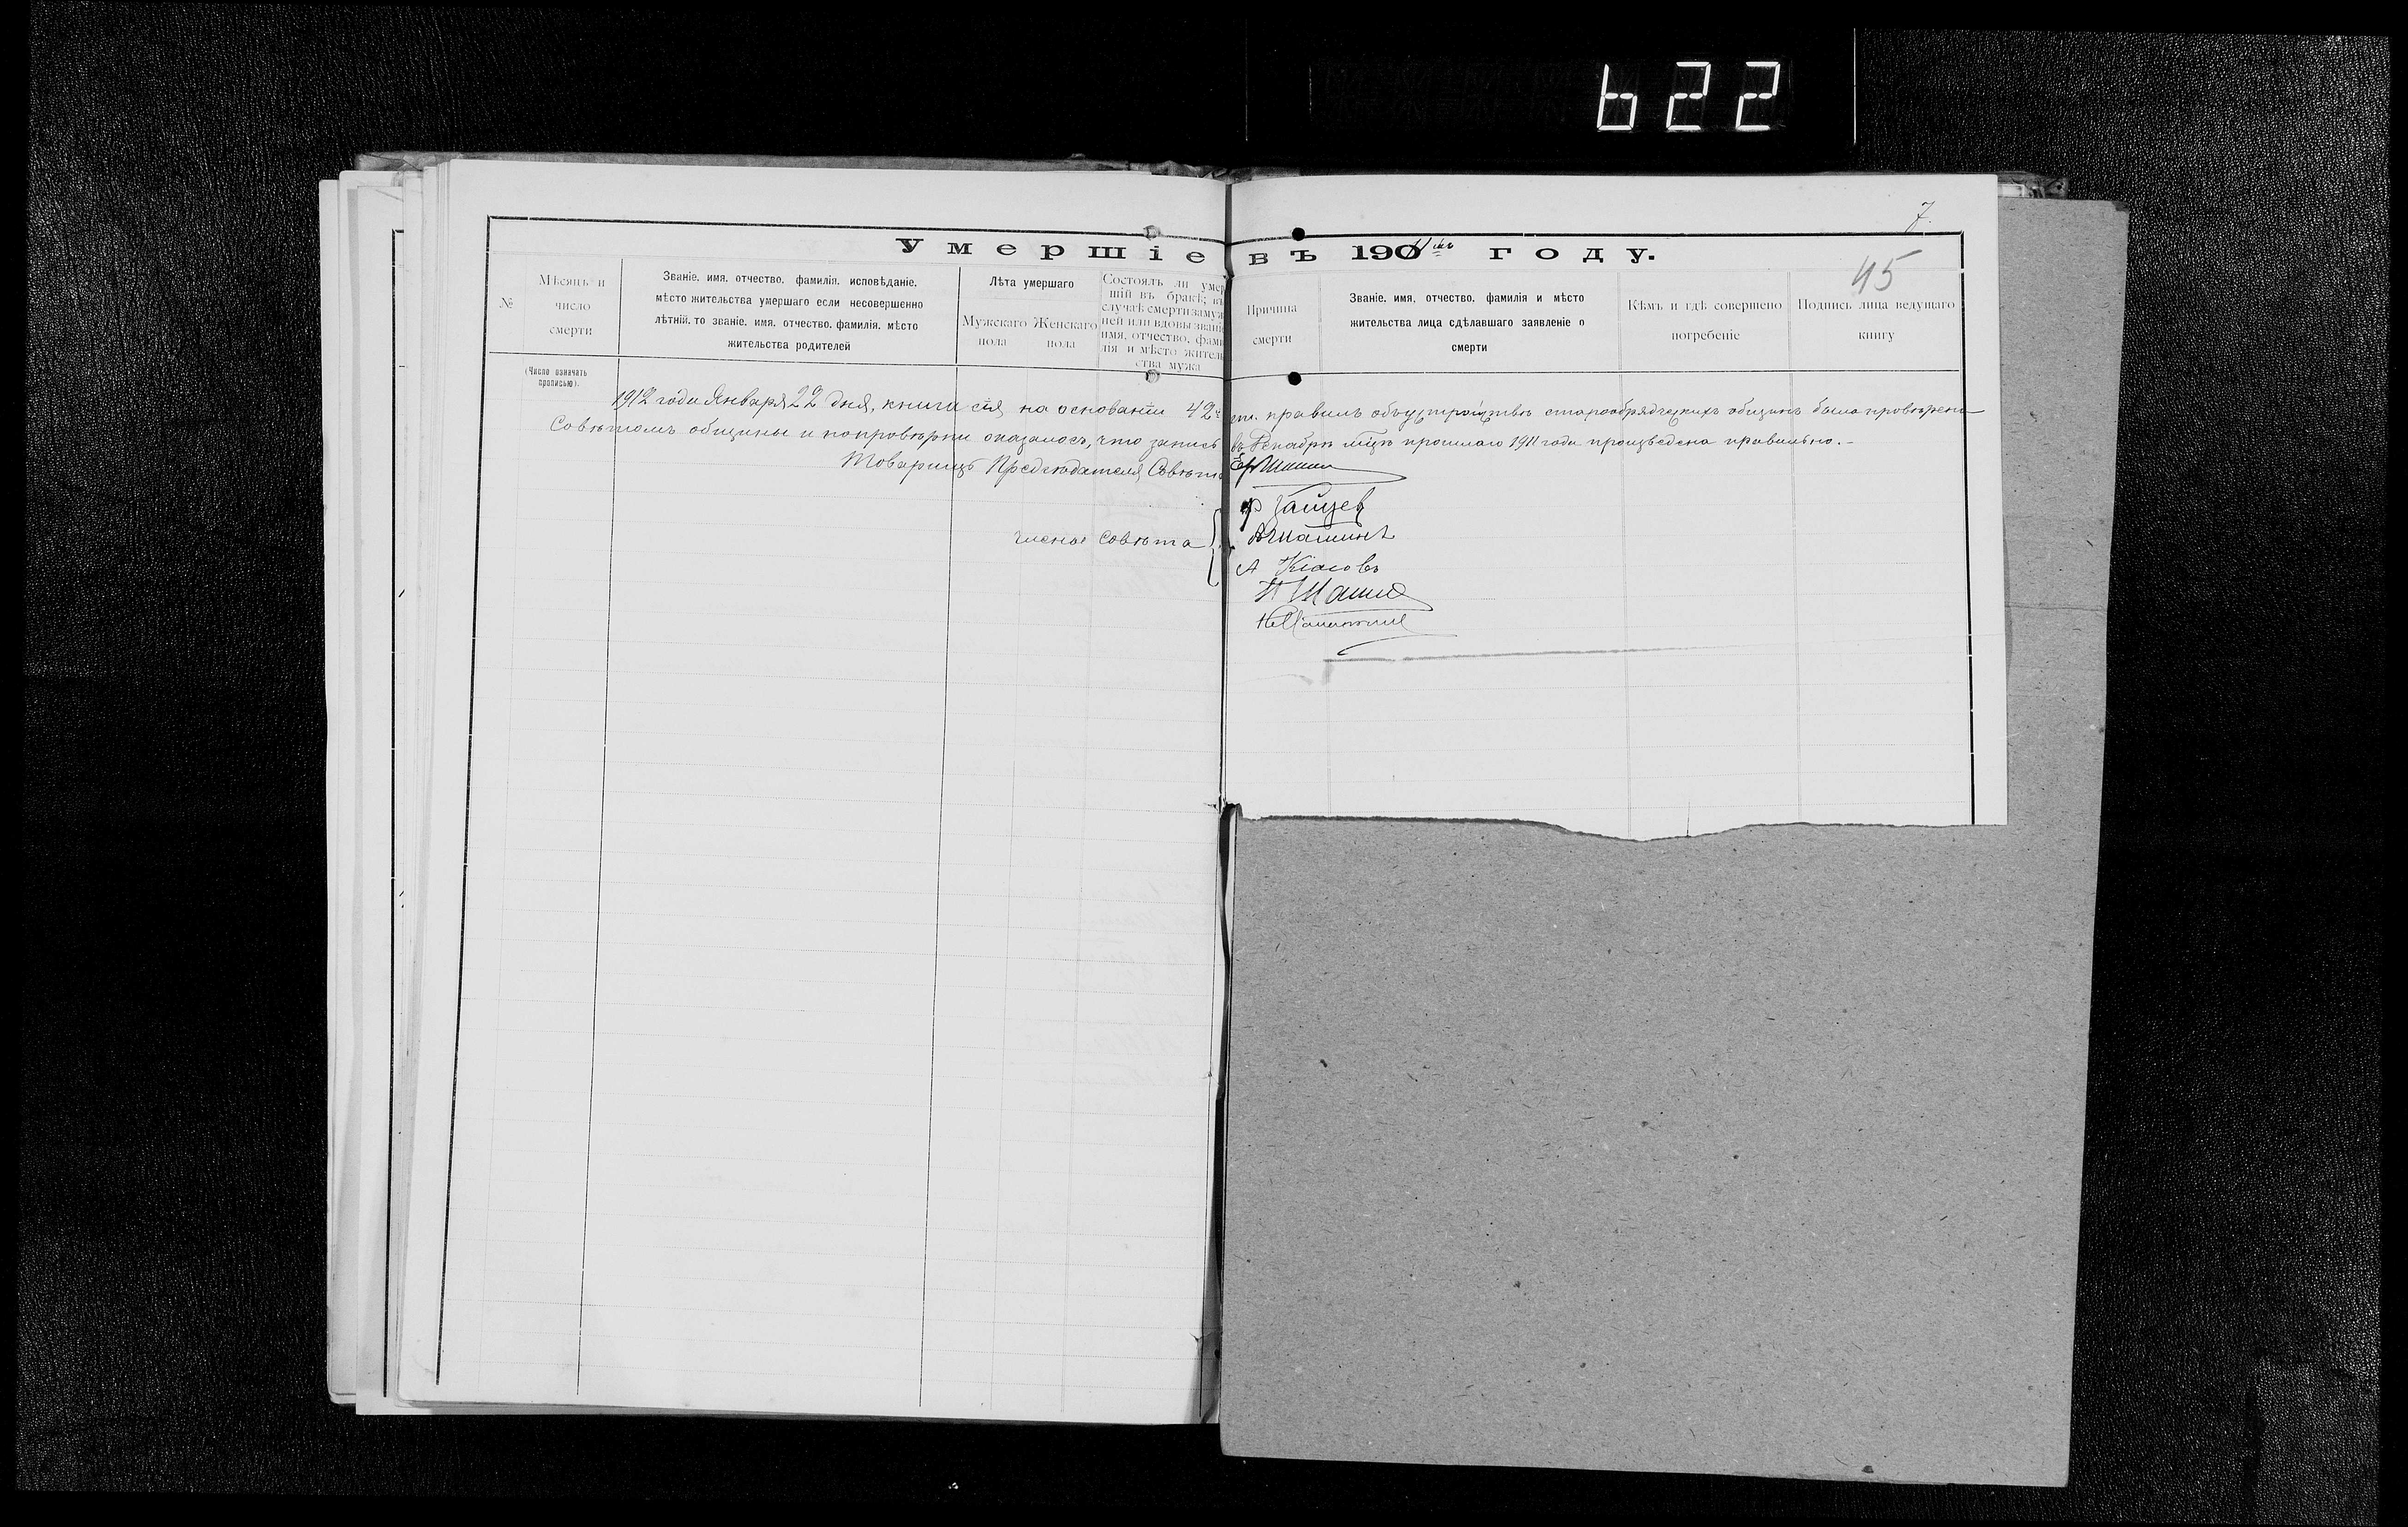 622
7.
45
Умершіе въ 1911мъ году.
№
Мѣсяцъ и
число
смерти
(Число означать
прописью).
Званіе. имя. отчество. фамилія. исповѣданіе.
мѣсто жительства умершаго если несовершенно
лѣтній. то званіе. имя. отчество. фамилія. мѣсто
жительства родителей
Лѣта умершаго
Мужскаго
пола
Женскаго
пола
Состоялъ ли умер
шій въ бракѣ; въ
случаѣ смерти замуж
ней или вдовы званіе
имя, отчество, фами
лія и мѣсто житель
ства мужа
Причина
смерти
Званіе. имя, отчество. фамилія и мѣсто
жительства лица сдѣлавшаго заявленіе о
смерти
Кѣмъ и гдѣ совершено
погребеніе
Подпись лица ведущаго
книгу
1912 года Января 22 дня, книга сія на основаніи 42 ст. правилъ объ устройствѣ старообрядческихъ общинъ была провѣрена
Совѣтомъ общины и по провѣрки оказалось, что запись въ Декабрѣ мцѣ прошлаго 1911 года произведена правильно.-
Товарищъ Председателя Совѣта
Ф Зайцев
члены Совѣта
А
Н